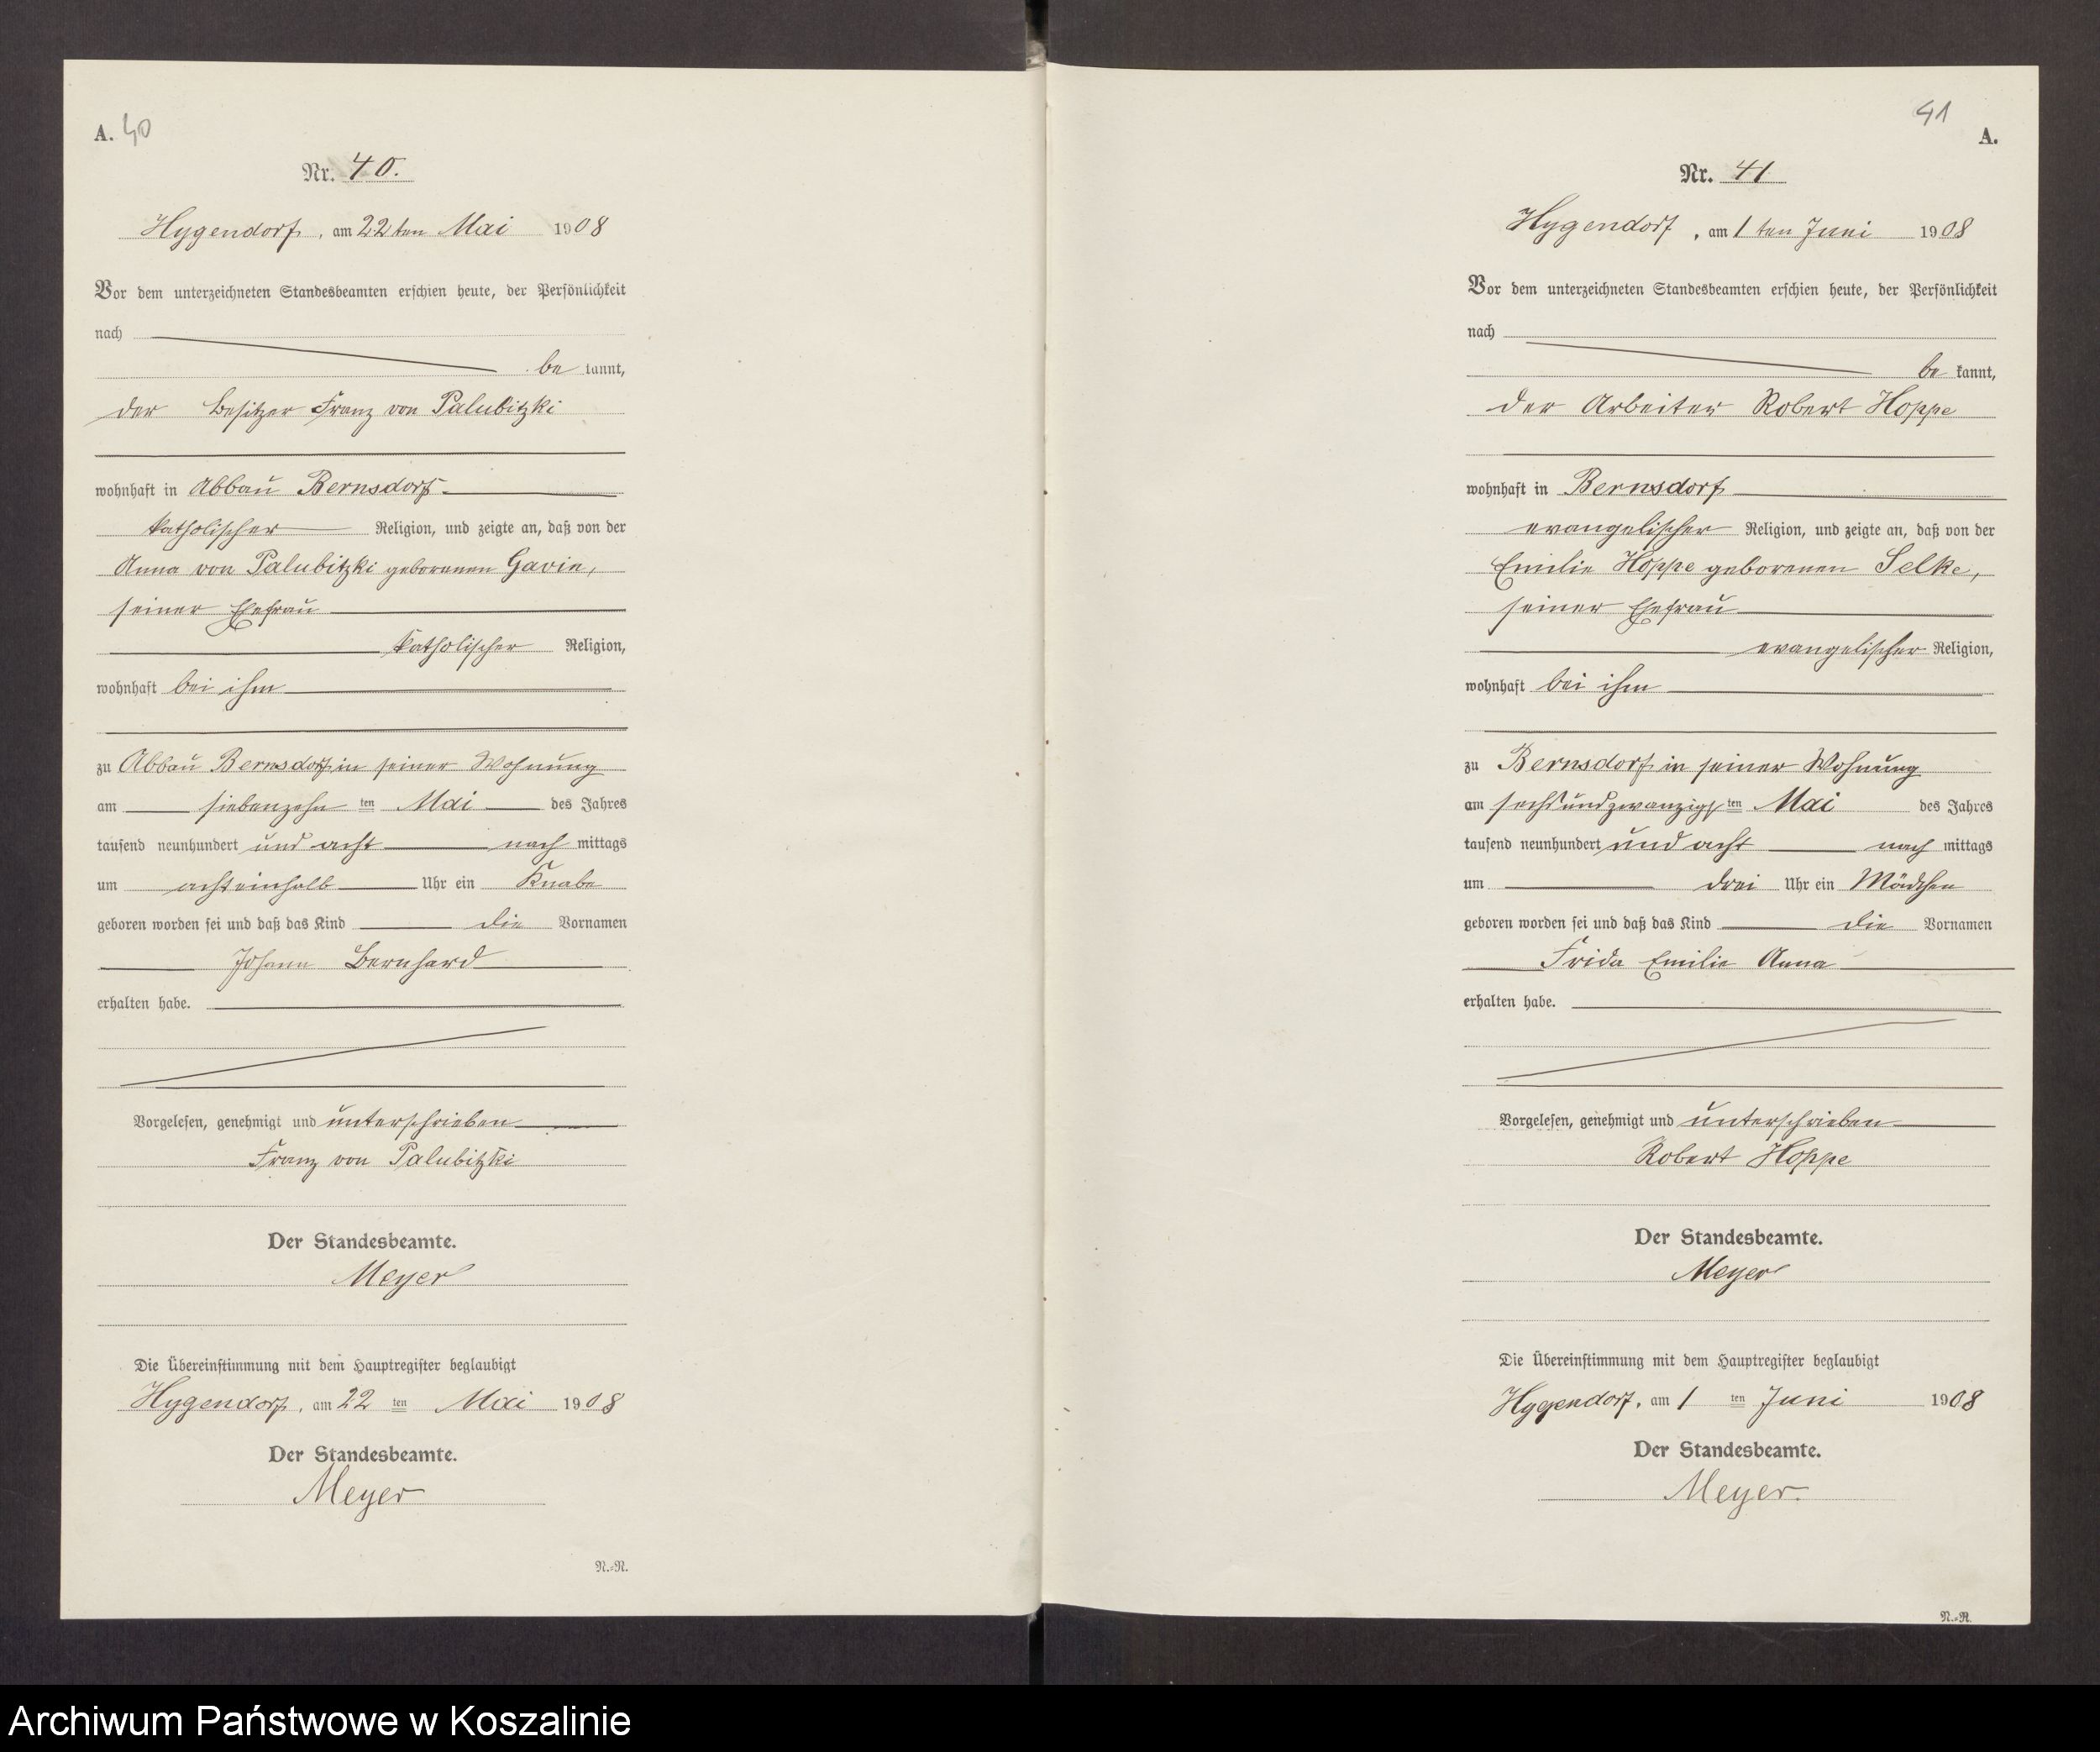 A. 40
Nr. 40.
Hygendorf, am 22ten Mai 1908
Vor dem unterzeichneten Standesbeamten erschien heute, der Persönlichkeit
nach
be kannt,
der Besitzer Franz von Palubitzki
wohnhaft in Abbau Bernsdorf
katholischer Religion, und zeigte an, daß von der
Anna von Palubitzki geborenen Gavin,
seiner Ehefrau
katholischer Religion,
wohnhaft bei ihm
zu Abbau Bernsdorf in seiner Wohnung
am siebenzehn ten Mai des Jahres
tausend neunhundert und acht nach mittags
um achteinhalb Uhr ein Knabe
geboren worden sei und daß das Kind die Vornamen
Johann Bernhard
erhalten habe.
Vorgelesen, genehmigt und unterschrieben
Franz von Palubitzki
Der Standesbeamte.
Meyer
Die Übereinstimmung mit dem Hauptregister beglaubigt
Hygendorf, am 22 ten Mai 1908
Der Standesbeamte.
Meyer
N.-N.
41
A.
Nr. 41
Hygendorf, am 1 ten Juni 1908
Vor dem unterzeichneten Standesbeamten erschien heute, der Persönlichkeit
nach
be kannt,
der Arbeiter Robert Hoppe
wohnhaft in Bernsdorf
evangelischer Religion, und zeigte an, daß von der
Emilie Hoppe geborenen Selke,
seiner Ehefrau
evangelischer Religion,
wohnhaft bei ihm
zu Bernsdorf in seiner Wohnung
am sechsundzwanzigs ten Mai des Jahres
tausend neunhundert und acht nach mittags
um drei Uhr ein Mädchen
geboren worden sei und daß das Kind die Vornamen
Frida Emilie Anna
erhalten habe.
Vorgelesen, genehmigt und unterschrieben
Robert Hoppe
Der Standesbeamte.
Meyer
Die Übereinstimmung mit dem Hauptregister beglaubigt
Hygendorf, am 1 ten Juni 1908
Der Standesbeamte.
Meyer.
N.-N.
Archiwum Państwowe w Koszalinie